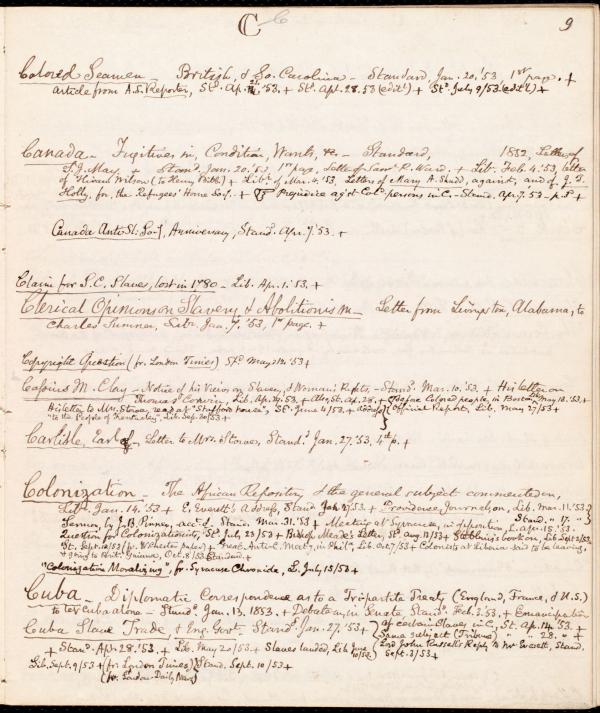 C
9
Colored Seamen - British, & So. Carolina - Standard, Jan. 20,'53, 1st page. +
article from A.S. Reporter, Std. Ap. '53. + Std. Apl. 28. 53 (editl) + Std. July 9/53 (editl) +
Canada - Fugitives in, Condition, Wants, &c. - Standard, 1852, Letter of
S.J. May, + Stand. Jan. 20. '53 1st page, Letter of Saml R. Ward. + Lib. Feb. 4. '53, letter
of Hiram Wilson (to Henry Bibb) + Libr. of Mar. 4. '53, Letters of Mary A. Shadd, against, and of J. T.
Holly, for, the Refugees' Home Socy. + Prejudice agst Cold persons in C. - Stand. Apr. 7. 53 - p. 2 +
Canada Anti Sl: Socy, Anniversary, Stand. Apr. 7. 53. +
Claim for S.C. Slaves, lost in 1780 - Lib. Apr. 1. '53. +
Clerical Opinions on Slavery & Abolitionism - Letter from Livingston, Alabama, to
Charles Sumner, Libr. Jan. 7. '53, 1st page. +
Copyright Question (fr. London Times) Std. May 12. '53 +
Cassius M. Clay - Notice of his Views on Slavery, & Woman's Rights, - Stand. Mar. 10. '53. + His letter on
Thomas Corwin, Lib. Apr. 29. 53 + Also, St. Ap. 28. + Before Colored people, in Boston May 18. '53 +
His letter to Mrs. Stowe, read at "Stafford House", St. June 4/53, + address (Official Report), Lib. May 27/53 +
"to the People of Kentucky", Lib. Sep. 30/53 +
Carlisle, Earl of - Letter to Mrs. Stowe, Stand. Jan. 27. '53, 4th p. +
Colonization - The African Repository & the general subject commented on,
Libr. Jan. 14. '53 + E. Everett's Address, Stand. 27/53. + Providence Journal on, Lib. Mar. 11. '53 }
Stand. " 17. "
Sermon, by J.B. Pinney, acct. of. Stand. Mar. 31. '53 + Meeting at Syracuse, in opposition, L. Apr. 15. '53.
Question for Colonizationists, St. July 23/53 + Bishop Meade's Letter, St. Aug. 13/53 + book on, Lib. Sept 2/53
St. Sept. 10/53 (fr. Rochester paper) + Great Anti-C. Meetg, in Phila., Lib. Oct. 7/53 + Colonists at Liberia said to be leaving,
& going to British Guiana, Oct. 8/53 Standard. +
"Colonization Moralizing", fr. Syracuse Chronicle, L. July 15/53 +
Cuba - Diplomatic Correspondence as to a Tripartite Treaty (England, France, & U.S.)
to let Cuba alone - Stand. Jan. 13. 1853. + Debate on, in Senate, Stand. Feb. 3. 53, + Emancipation
Cuba Slave Trade, & Eng. Govt. - Stand. Jan. 27, '53 + of certain Slaves in C., St. Apr. 14. '53.
Same subject (Tribune) " " 28. " +
+ Stand. Apr. 28. '53. + Lib. May 20/53 + Slaves landed, Lib. June 10/53. Lord John Russell's Reply to Mr Everett, Stand.
Sept. 3/53 +
Lib. Sept. 9/53 + (fr London Times) Stand. Sept. 10/53 +
(fr. London Daily News)